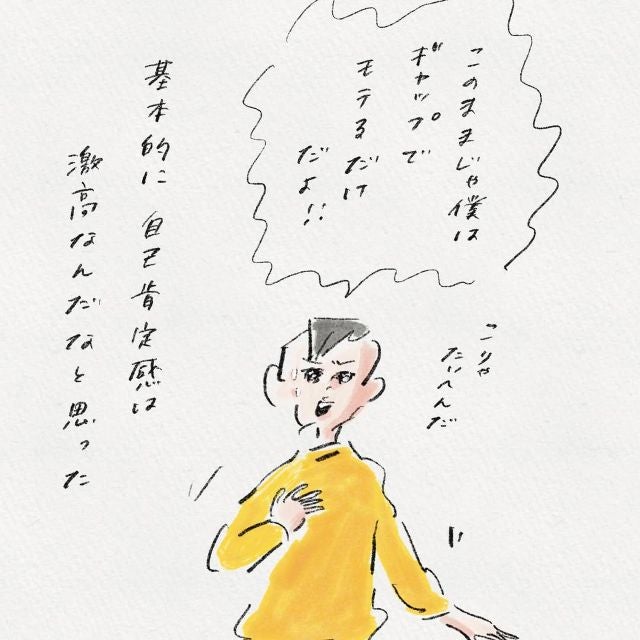 このままじゃ僕は
ギャップで
モテるだけ
だよ!!
こりゃ
たいへんだ
基本的に 自己肯定感は
激高なんだなと思った